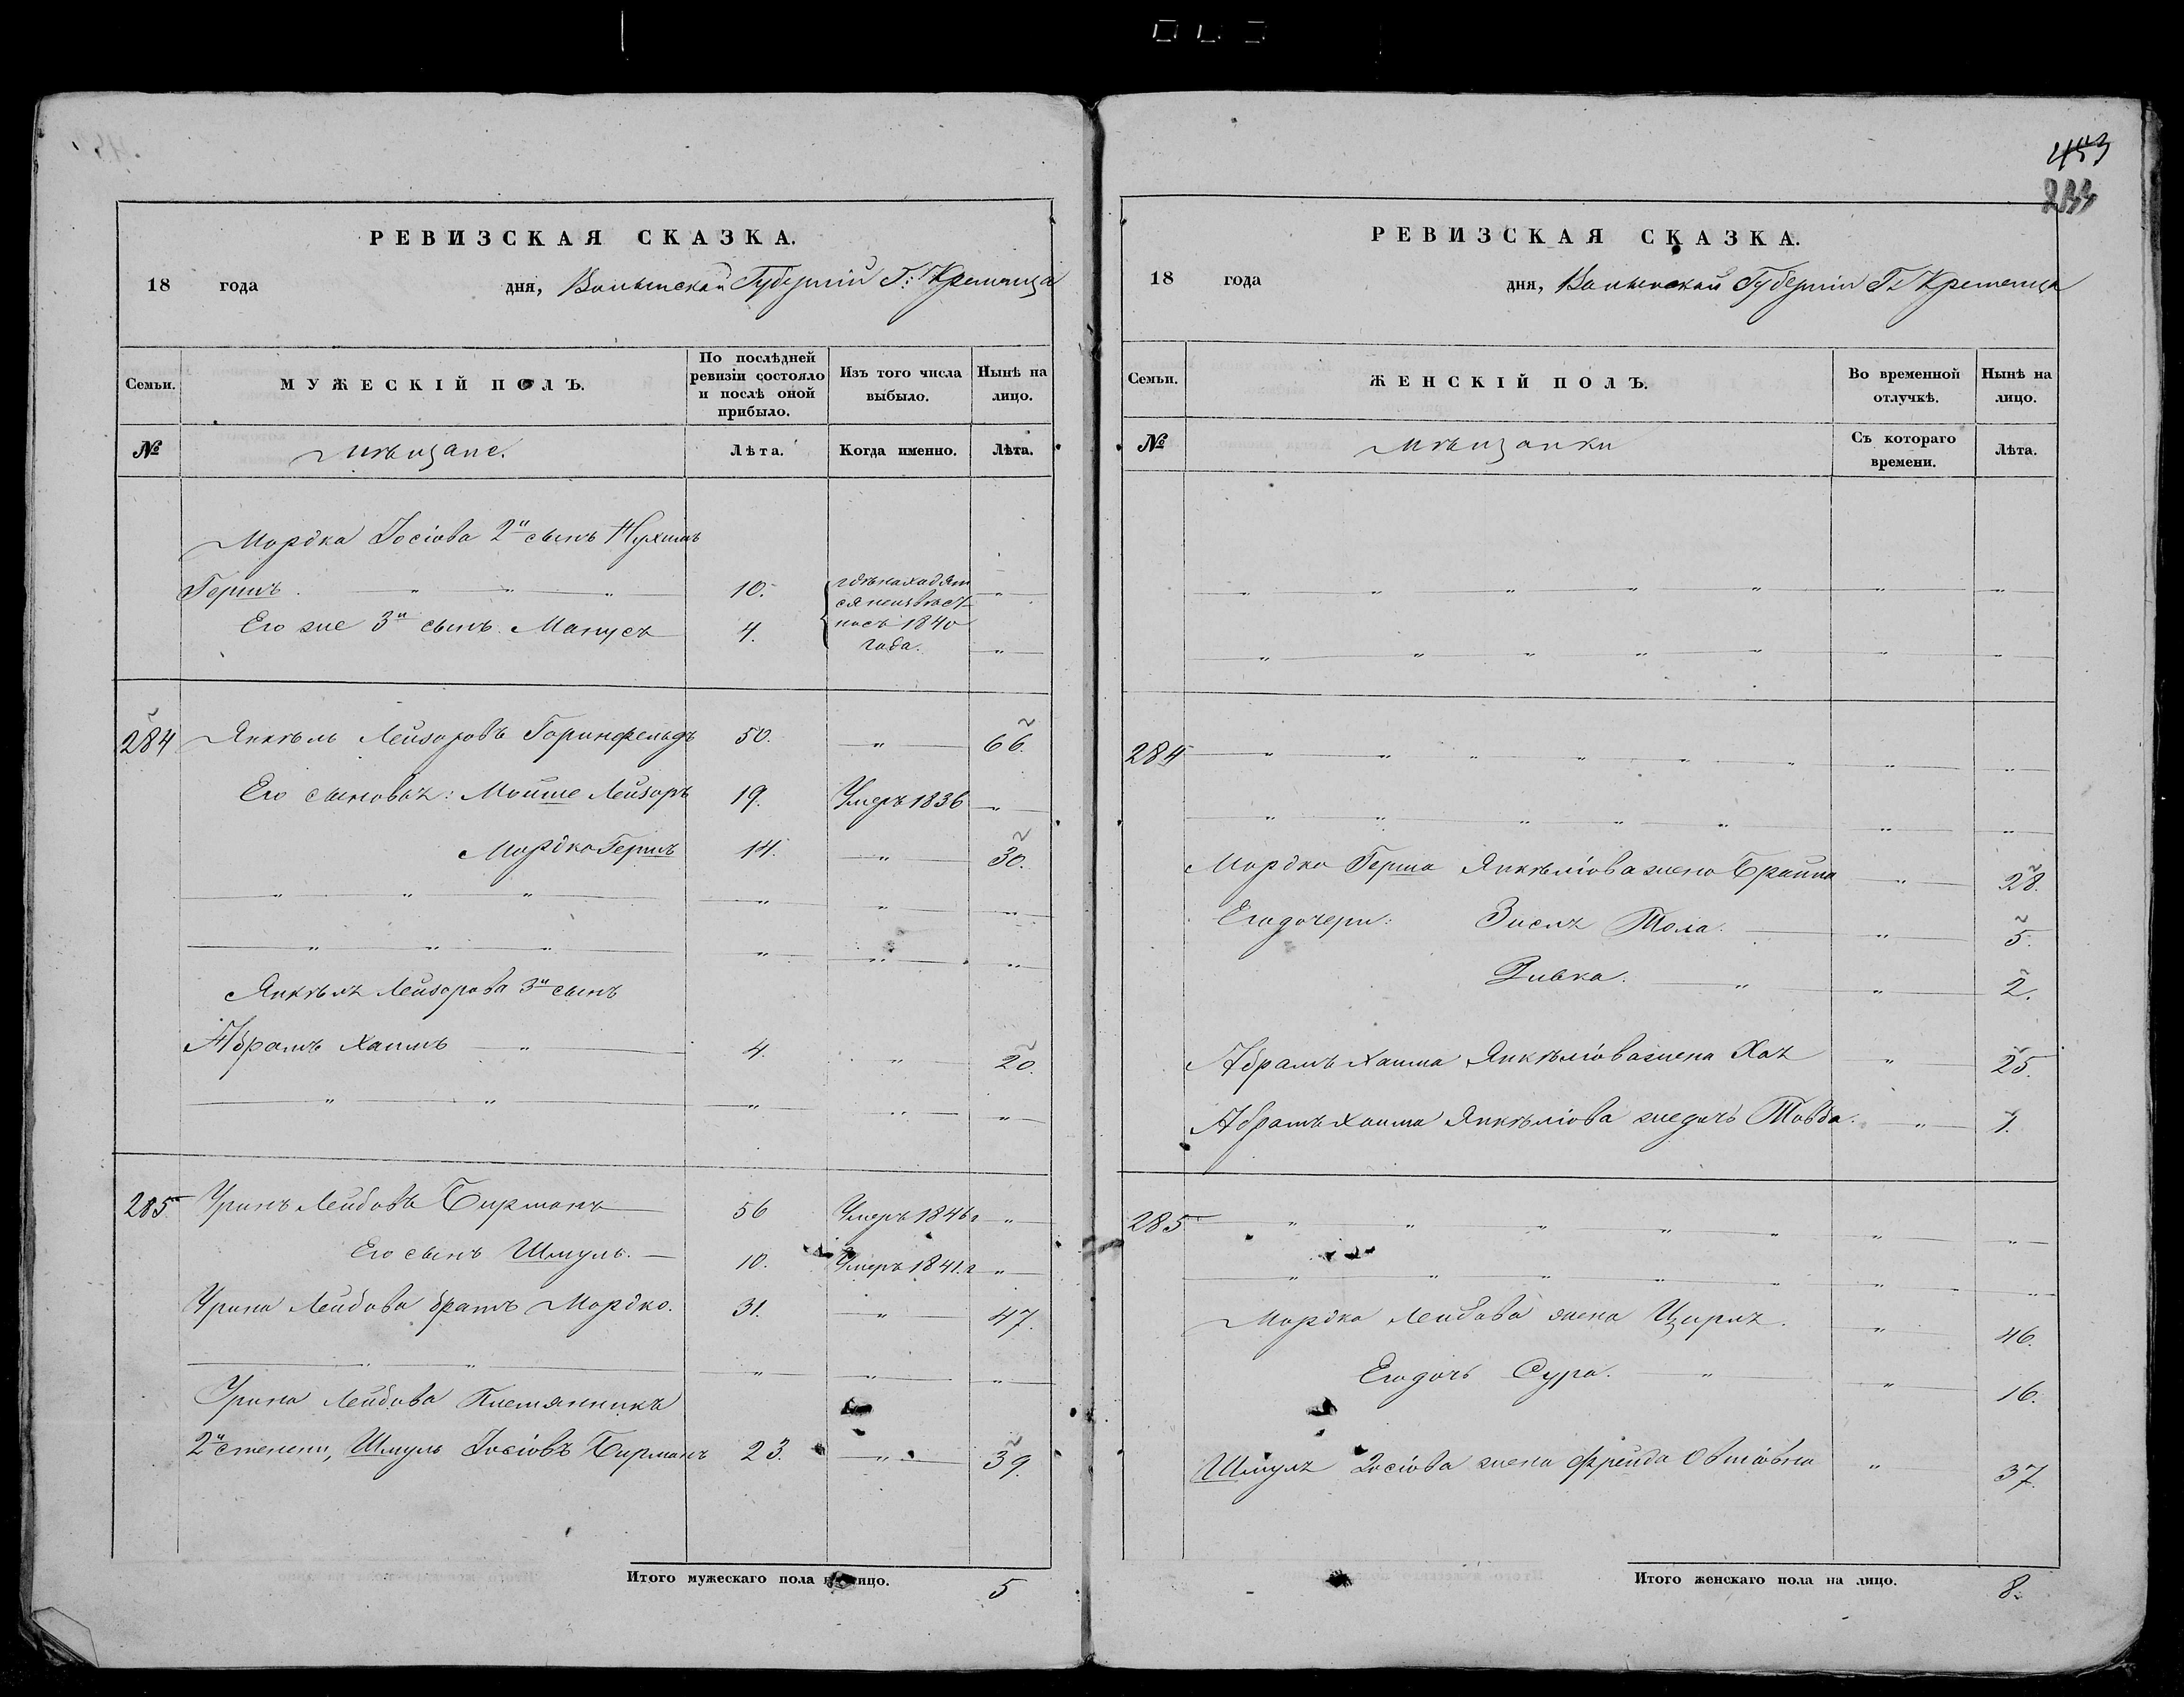 РЕВИЗСКАЯ СКАЗКА.
18 года дня, Волынской Губерніи Г: Кременца
Семьи. МУЖЕСКІЙ ПОЛЪ. По послѣдней ревизіи состояло и послѣ оной прибыло. Изъ того числа выбыло. Нынѣ на лицо.
№ Мѣщане. Лѣта. Когда именно. Лѣта.
Мордка Іосіова 2й сынъ Нухимъ
Гершъ. " " " 10. гдѣ находят "
ся неизвѣст
Его же 3й сынъ Манусъ 4. но съ 1840
года. "
284 Янкѣль Лейзоровъ Горинфельдъ 50. " 66.
Его сыновья: Мойше Лейзоръ 19. Умеръ 1836 "
Мордко Гершъ 14. " 30.
" " " " " "
" " " " " "
Янкѣля Лейзорова 3й сынъ
Абрамъ Хаимъ " 4. " 20.
" " " " "
285 Уринъ Лейбовъ Бирманъ 56 Умеръ 1846г "
Его сынъ Шмуль. 10. Умеръ 1841.г "
Урина Лейбова братъ Мордко. 31. " 47.
" " " " "
Урина Лейбова Племянникъ
2й степени, Шмуль Іосіовъ Бирманъ 23. " 39.
Итого мужескаго пола на лицо. 5
453
РЕВИЗСКАЯ СКАЗКА.
18 года дня, Волынской Губерніи Г. Кременца
Семьи. ЖЕНСКІЙ ПОЛЪ. Во временной отлучкѣ. Нынѣ на лицо.
№ Мѣщанки Съ котораго времени. Лѣта.
" " " " " " "
" " " " " " "
284 " " " " " " " "
" " " " " " "
Мордко Герша Янкѣліова жена Брайна " 28.
Его дочери: Зисля Тола. " 5.
Ривка. " " 2.
Абрамъ Хаима Янкѣліова жена Хая " 25.
Абрамъ Хаима Янкѣліова же дочь Товба. " 1.
285 " " " " " " "
" " " " " " "
Мордка Лейбова жена Циря. " 46.
Его дочь Сура. " " 16.
Шмуля Іосіова жена Фрейда Овшіовна " 37.
Итого женскаго пола на лицо. 8.